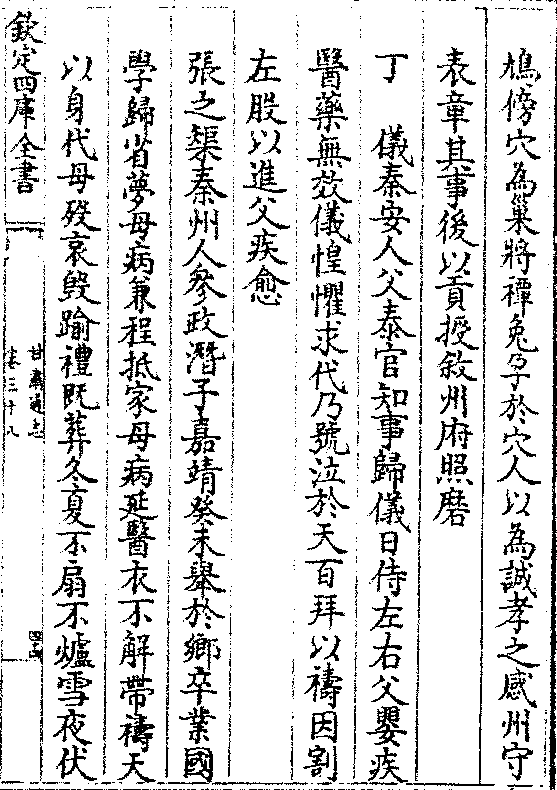 鳩傍穴為巢將禫兔孕於穴人以為誠孝之感州守
表章其事後以貢授敘州府照磨
丁　儀秦安人父泰官知事歸儀日侍左右父嬰疾
醫藥無效儀惶懼求代乃號泣於天百拜以禱因割
左股以進父疾愈
張之榘秦州人參政潛子嘉靖癸未舉於鄉卒業國
學歸省夢母病兼程抵家母病延醫衣不解帶禱天
以身代母歿哀毀踰禮既葬冬夏不扇不爐雪夜伏
欽定四庫全書
甘肅通志
卷三十八